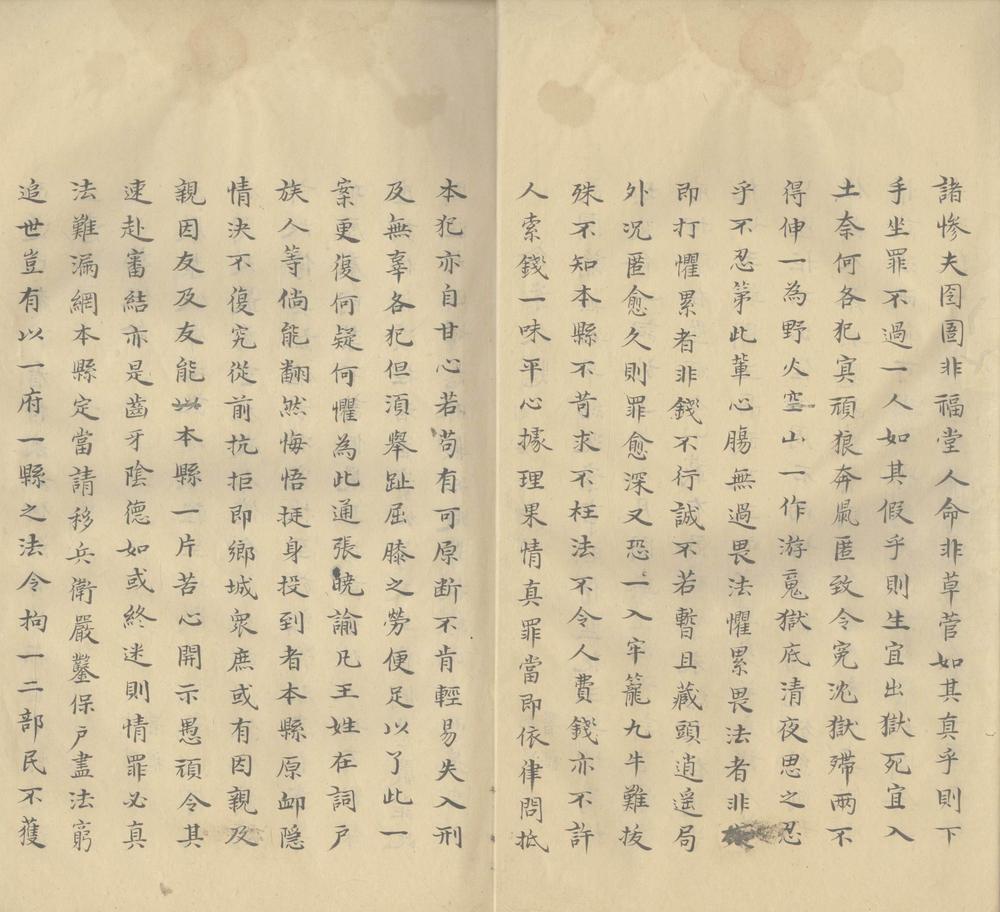 諸慘夫囹圄非福堂人命非草菅如其真乎則下
手坐罪不過一人如其假乎則生宜出獄死宜入
土奈何各犯寘頑狼奔鼠匿致令寃沈獄殢兩不
得伸一為野火空山一作游䰟獄底清夜思之忍
乎不忍第此輩心膓無過畏法懼累畏法者非
即打懼累者非錢不行誠不若暫且藏頭逍遥局
外况匿愈久則罪愈深又恐一入牢籠九牛難拔
殊不知本縣不苛求不枉法不令人費錢亦不許
人索錢一味平心據理果情真罪當即依律問抵
本犯亦自甘心若苟有可原断不肯輕易失入刑
及無辜各犯但湏舉趾屈膝之勞便足以了此一
案更復何疑何懼為此通張曉諭凡王姓在詞戶
族人等倘能翻然悔悟挺身投到者本縣原卹隠
情決不復究從前抗拒即鄉城衆庶或有因親及
親因友及友能以本縣一片苦心開示愚頑令其
速赴審結亦是齒牙陰德如或終迷則情罪必真
法難漏網本縣定當請移兵衛嚴鑿保戶盡法窮
追世豈有以一府一縣之法令拘一二部民不獲